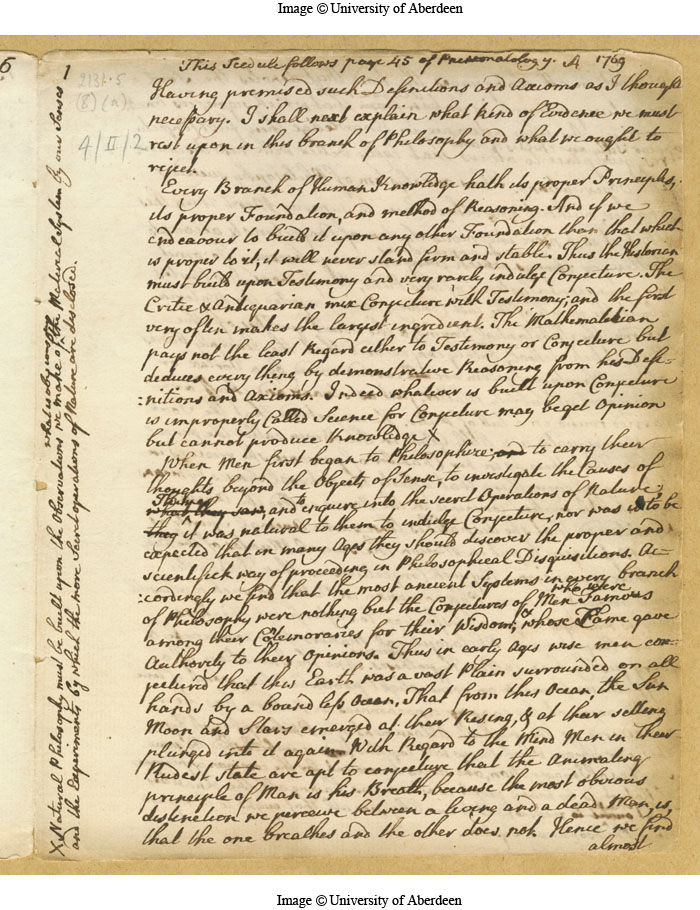 Image © University of Aberdeen
6
1
This Scedule follows page 45 of Pneumatology. A 1769
2131.5
(8) (a)
4/II/2
Having premised such Definitions and Axioms as I thought
necessary. I shall next explain what kind of Evidence we must
rest upon in this branch of Philosophy and what we ought to
reject.
Every Branch of Human Knowledge hath its proper Principles,
its proper Foundation, and method of Reasoning. And if we
endeavour to build it upon any other Foundation than that which
is proper to it, it will never stand firm and stable. Thus the Historian
must build upon Testimony and very rarely indulge Conjecture. The
Critic & Antiquarian mix Conjecture with Testimony; and the first
very often makes the largest ingredient. The Mathematician
pays not the least Regard either to Testimony or Conjecture but
deduces every thing by demonstrative Reasoning from his Defi-
:nitions and Axioms. Indeed whatever is built upon Conjecture
is improperly Called Science for Conjecture may beget Opinion
but cannot produce Knowledge X
When Men first began to Philosophize; and to carry their
thoughts beyond the Objects of Sense, to investigate the Causes of
Things
what they saw, and to enquire into the secret Operations of Nature;
they it was natural to them to indulge Conjecture, nor was it to be
expected that in many Ages they should discover the proper and
scientifick way of proceeding in Philosophical Disquisitions. Ac-
:cordingly we find that the most ancient Systems in every branch
who were
of Philosophy were nothing but the Conjectures of Men Famous
among their Cotemporaries for their Wisdom, & whose Fame gave
Authority to their Opinions. Thus in early Ages wise men con-
jectured that this Earth was a vast Plain surrounded on all
hands by a boundless Ocean. That from this Ocean, the Sun
Moon and Stars emerged at their Rising, & at their setting
plunged into it again. With Regard to the Mind Men in their
Rudest state are apt to conjecture that the Animating
principle of Man is his Breath, because the most obvious
distinction we perceive between a living and a dead Man, is,
that the one breathes and the other does not. Hence we find
almost
X Natural Philosophy must be built upon the Observations we make of the Material System by our Senses
and the Experiments by which the more Secret operations of Nature are disclosed.
Image © University of Aberdeen